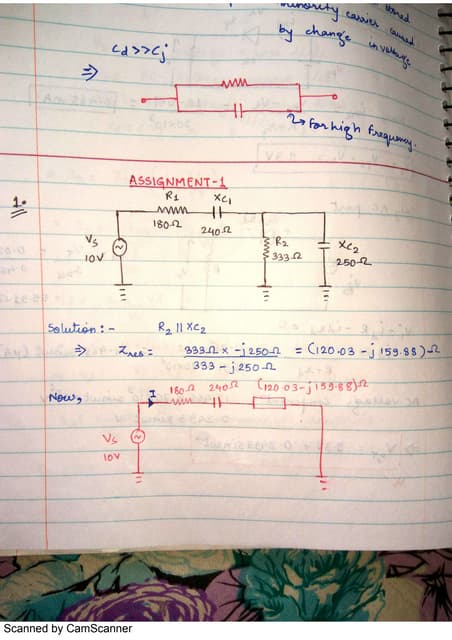 minority carrier caused
by change in voltage
Cd >> Cj
⇒
For high frequency.
ASSIGNMENT-1
1.
R1 XC1
180Ω 240Ω
Vs
10V
R2
333Ω
XC2
250Ω
Solution :- R2 || XC2
⇒ Zres = 333Ω x -j250Ω / 333 - j250Ω = (120.03 - j 159.88)Ω
Now,
I 180Ω 240Ω (120.03 - j159.88)Ω
Vs
10V
Scanned by CamScanner